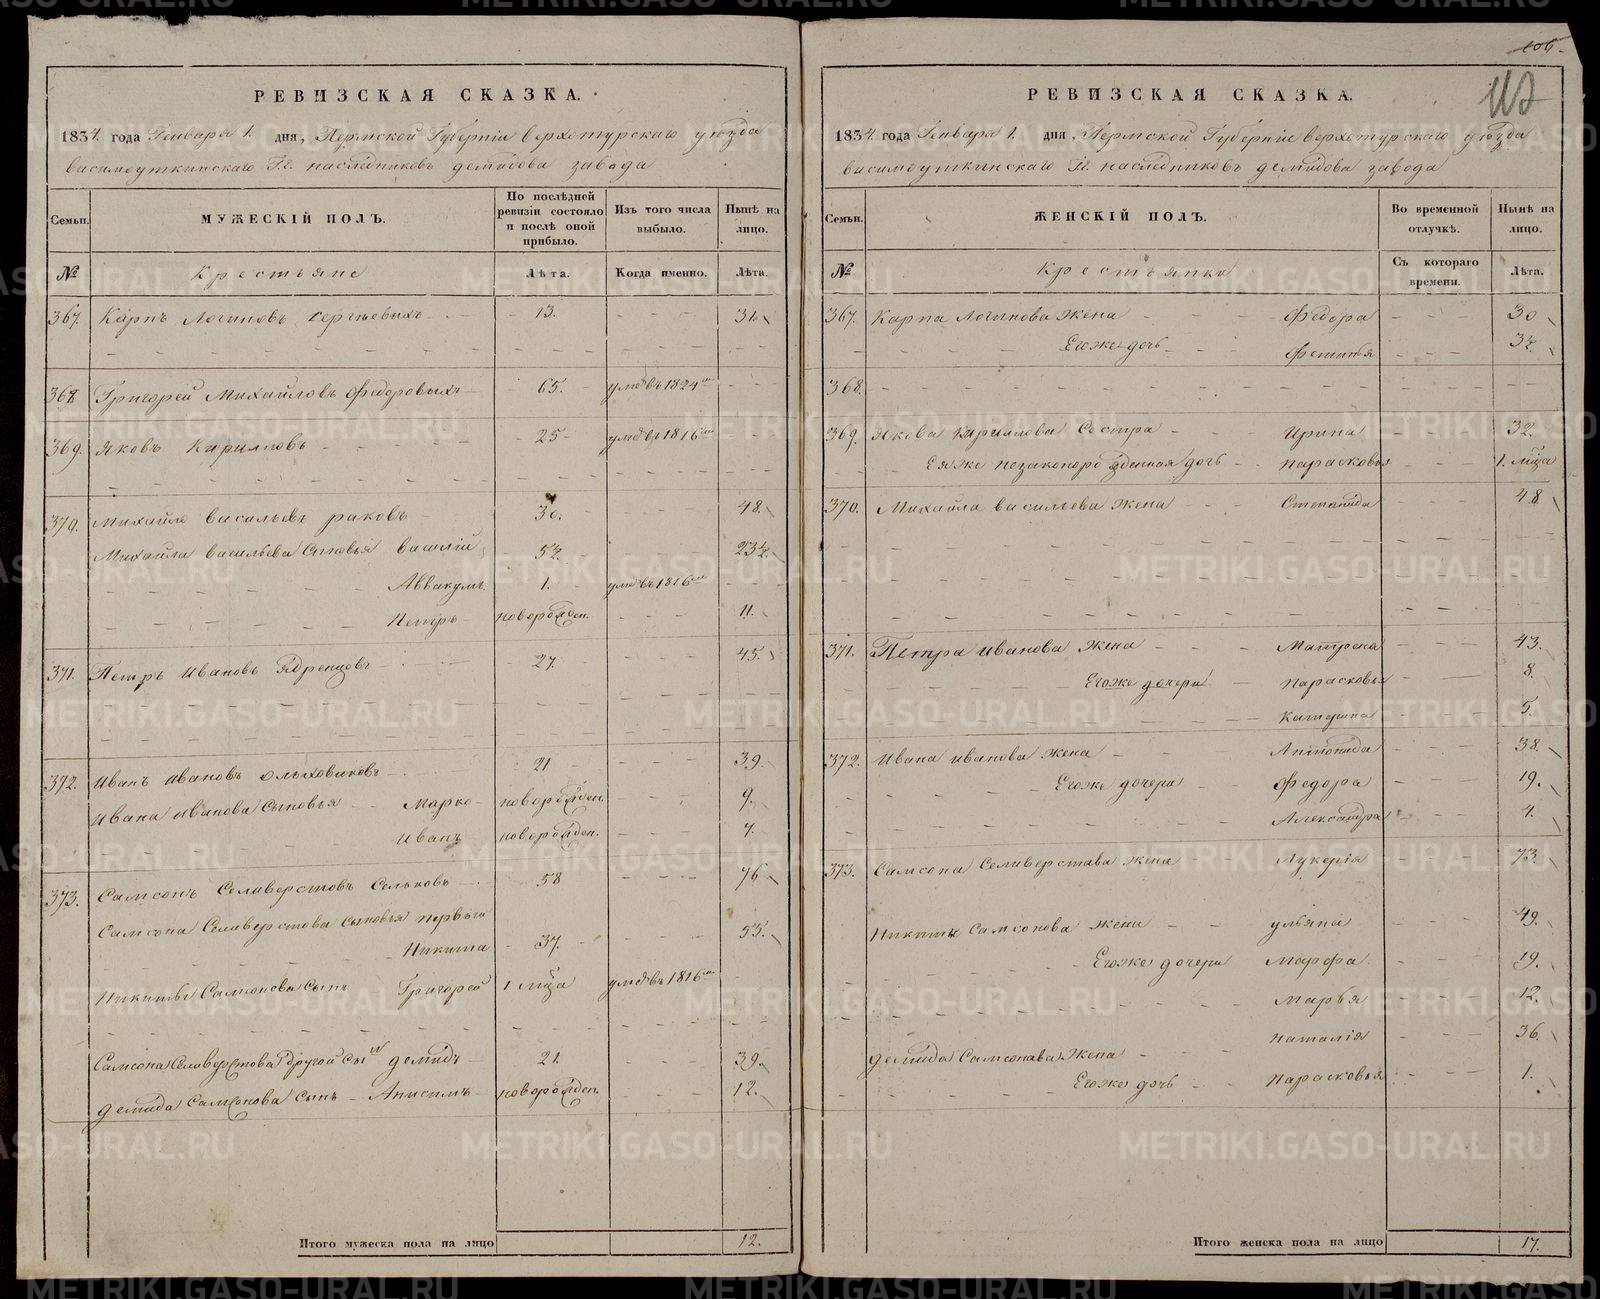 106.
112
РЕВИЗСКАЯ СКАЗКА.
1834. года Генваря 1. дня, Пермской Губерніи верхотурскаго уѣзда
висимоуткинскаго Гг. наслѣдниковъ демидова завода
Семьи. МУЖЕСКІЙ ПОЛЪ. По послѣдней ревизіи состояло и послѣ оной прибыло. Изъ того числа выбыло. Нынѣ на лицо.
№ Крестьяне Лѣта. Когда именно. Лѣта.
367. Карпъ Логиновъ Сергѣевыхъ 13. 31.
368 Григорей Михайловъ Федоровыхъ 65. умъ въ 1824мъ
369. Яковъ Кириловъ 25 умъ въ 1816мъ
370. Михайло васильевъ раковъ 30. 48.
Михайла васильева Сыновья василій 5½. 23½.
Аввакумъ 1. умъ въ 1816мъ
Петръ новорожден. 11.
371. Петръ Ивановъ 27. 45.
372. Иванъ Ивановъ ольховиковъ 21 39.
Ивана Иванова Сыновья Марко новорожден. 9.
Иванъ новорожден. 7.
373. Самсонъ Селиверстовъ Сельковъ 58 76
Самсона Селиверстова Сыновья первый
Никита 37. 55.
Никиты Самсонова Сынъ Григорей 1 мца умъ въ 1816мъ
Самсона Селиверстова другой сынъ демидъ 21. 39.
демида Самсонова Сынъ Анисимъ новорожден. 12.
Итого мужеска пола на лицо 12.
РЕВИЗСКАЯ СКАЗКА.
1834. года Генваря 1. дня, Пермской Губерніи верхотурскаго уѣзда
висимоуткинскаго Гг. наслѣдниковъ демидова завода
Семьи. ЖЕНСКІЙ ПОЛЪ. Во временной отлучкѣ. Нынѣ на лицо.
№ Крестьянки Съ котораго времени. Лѣта.
367. Карпа Логинова жена Федора 30
Егоже дочь Фетинья 3½.
368.
369. Якова Кирилова Сестра Ирина 32.
Еяже незаконорожденная дочь Парасковья 1. мца
370. Михайла васильева жена Степанида 48
371. Петра Иванова жена Матрена 43.
Егоже дочери Парасковья 8.
Катерина 5.
372. Ивана Иванова жена Антонида 38.
Егоже дочери Федора 19.
Александра 4.
373. Самсона Селиверстава жена Лукерія 73.
Никиты Самсонова жена ульяна 49.
Егоже дочери Марфа 19.
Марья 12.
демида Самсонава жена Наталія 36.
Егоже дочь Парасковья 1.
Итого женска пола на лицо 17.
METRIKI.GASO-URAL.RU